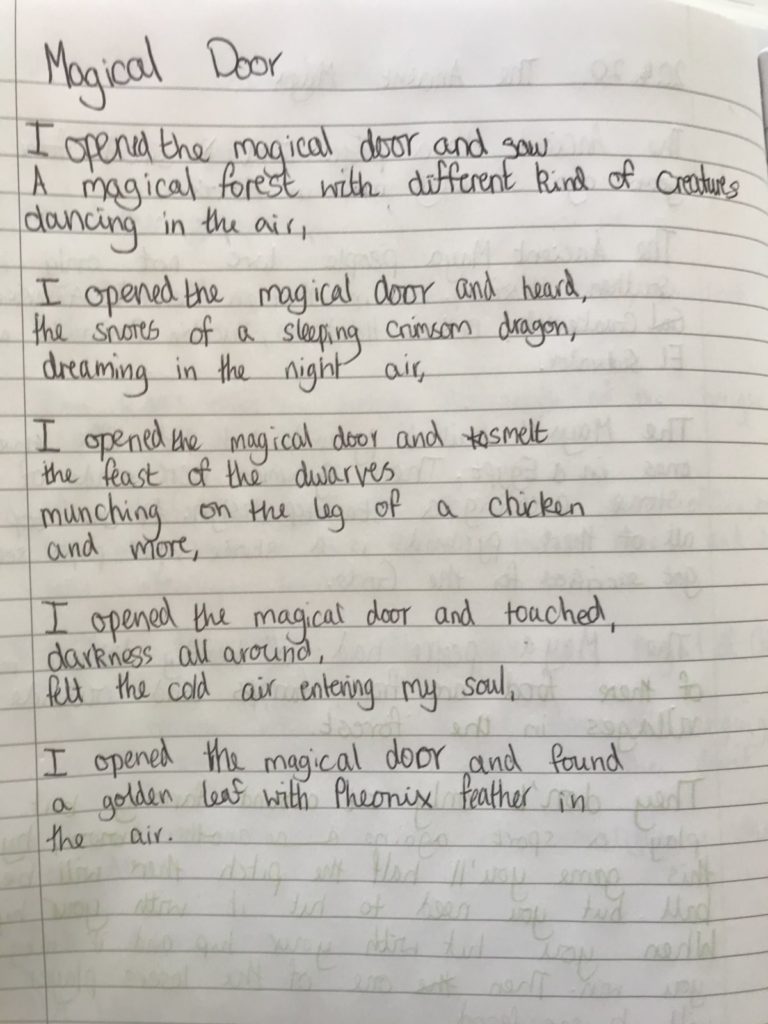 Magical Door
I opened the magical door and saw
A magical forest with different kind of creatures
dancing in the air,
I opened the magical door and heard,
the snores of a sleeping crimson dragon,
dreaming in the night air,
I opened the magical door and smelt
the feast of the dwarves
munching on the leg of a chicken
and more,
I opened the magical door and touched,
darkness all around,
felt the cold air entering my soul,
I opened the magical door and found
a golden leaf with Pheonix feather in
the air.